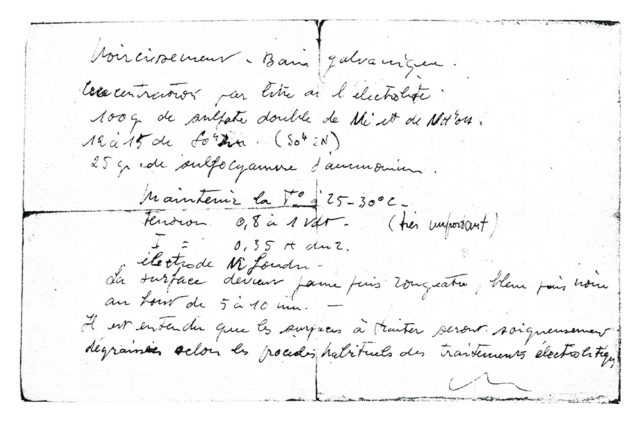 Noircissement - Bain galvanique.
Concentration par litre de l'électrolite
100 gr de sulfate double de Ni et de
12 à 15 de So⁴Zn. (So⁴ZN)
25 gr de sulfocyanure d'ammonium.
Maintenir la T° à 25-30°C-
Tension 0,8 à 1 Volt (très important)
I = 0,35 A dm2.
électrode Ni fondu-
La surface devient jaune puis rougeatre, bleue puis noire
au bout de 5 à 10 mn. -
Il est entendu que les surfaces à traiter seront soigneusement
dégraissées selon les procédés habituels des traitements électrolytiques